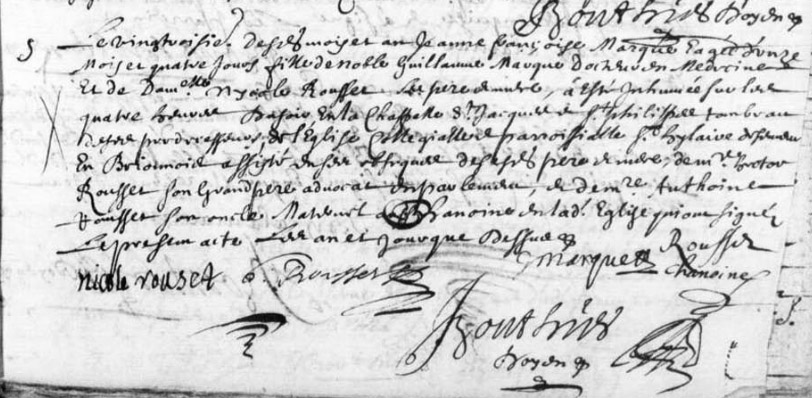 Bouthier doyen
Le vingtroisie. desds mois et an Jeanne francoise Marque Eagée d'unze
Mois et quatre Jours fille de noble Guillaume Marque docteur en Medecine
Et de Dam.elle Nycole Rousset Ses pere et mere, a Esté Inhumée sur les
quatre heures Du soir En la Chappelle St Jacques et St philippe tombeau
de ses predecesseurs, de l'Eglise Collegialle et parroissialle St hylaire de Semeur
En Brionnois assistée de ses obseques de sesds pere et mere, de mre hector
Rousset son Grand pere advocat En parlement, et de mre Anthoine
Rousset son oncle Maternel Chanoine en lad. Eglise qui ont signéz
Le present acte Les an et Jour que Dessus
Marque Rousset
Chanoine
nicole rouset Rousset
Bouthier
doyen